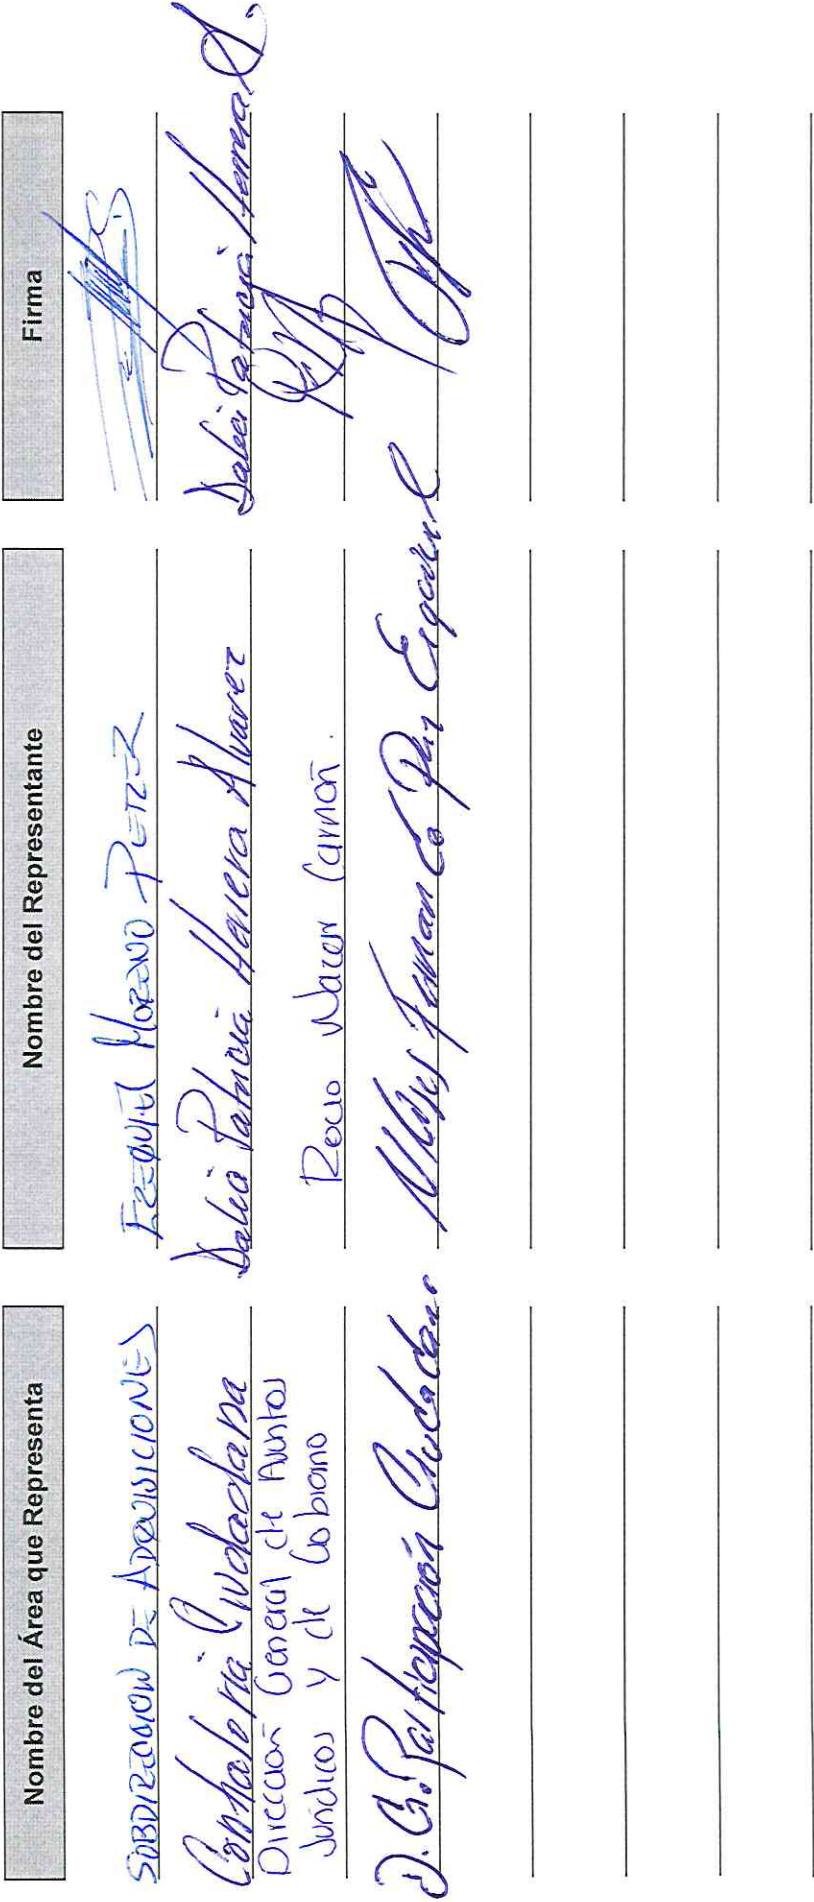 Nombre del Área que Representa
Nombre del Representante
Firma
SUBDIRECCION DE ADQUISICIONES
EZEQUIEL MORENO PEREZ
Contraloria Ciudadana
Dalia Patricia Herrera Alvarez
Dalia Patricia Herrera A.
Dirección General de Asuntos
Jurídicos y de Gobierno
Rocio Carmon.
D. G. Participación Ciudadana
Ulises